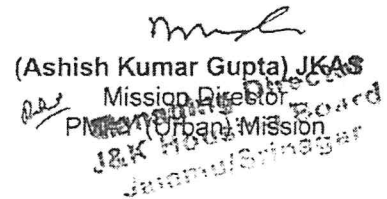 (Ashish Kumar Gupta) JKAS
Mission Director
PMAY (Urban) Mission
Managing Director
J&K Housing Board
Jammu/Srinagar